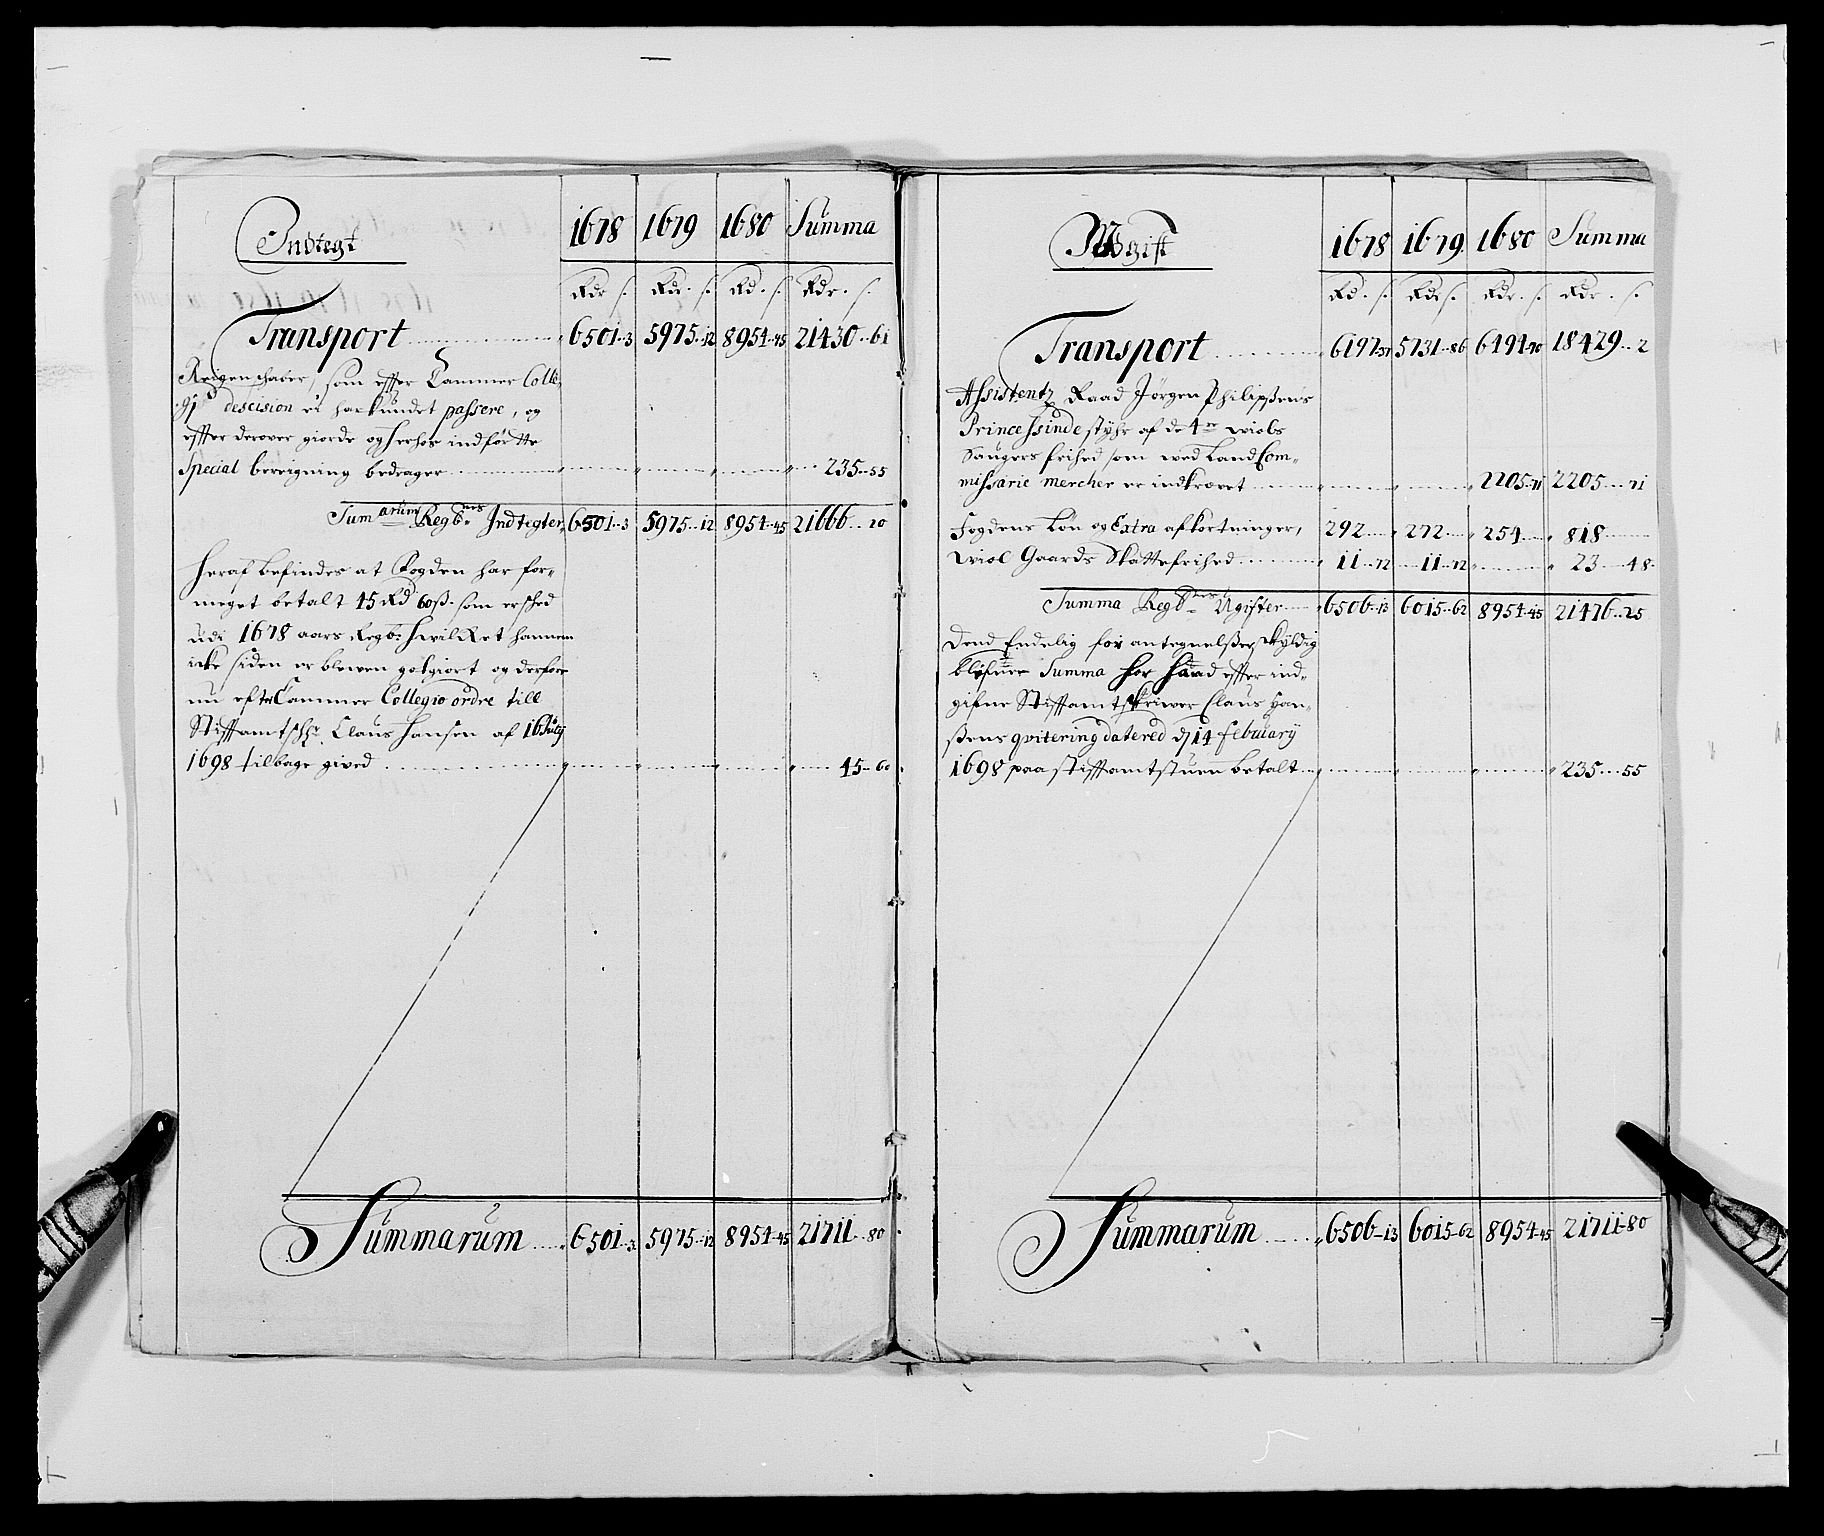 Indtegt 1678 1679 1680 Summa
Rdr s. Rdr. s. Rd. s. Rdr. s.
Transport 6501..3 5975..12 8954..45 21430..61
Reigenschaber, som effter Cammer Colle-
gij descision ei har kundet passere, og
effter derover giorde og herhos indførtte
Special bereigning bedrager 235..55
Summarium Regb.ns Indtegter 6501..3 5975..12 8954..45 21666..20
Heraf befindes at Fogden har for-
meget betalt 45 Rd 60 ß. som er sched
udi 1678 aars Regb: hwilket hannem
icke siden er blewen godgiort og derfore
nu efter Cammer Collegio ordre till
Stifftamtschr. Claus Hansen af 16 July
1698 tilbage gived 45..60
Summarum 6501..3 5975..12 8954..45 21711..80
Udgift 1678 1679. 1680 Summa
Rd. s. Rdr s. Rdr. s. Rdr. s.
Transport 6197..37 5731..86 6494..70 18429..2
Assistentz Raad Jørgen Philipßens
Princessinde styhr af de 4re wiobs
Saugers frihed som wed Land Com-
missarie mercher er indkrævet 2205..71 2205..71
Fogdens Løn og Extra afkortninger, 292 272 254 818
Wiol Gaards Skattefrihed 11..72 11..72 23..48.
Summa Regb.ns Ugifter 6506..13 6015..62 8954..45 21476..25
Dend Endelig for antegnelßer skyldig
blefune Summa hor haand effter ind-
gifne Stifftamtskriwer Claus Han-
ßens qvitering datered d 14 februarij
1698 paa stifftamtstuen betalt 235..55
Summarum 6506..13 6015..62 8954..45 21711..80